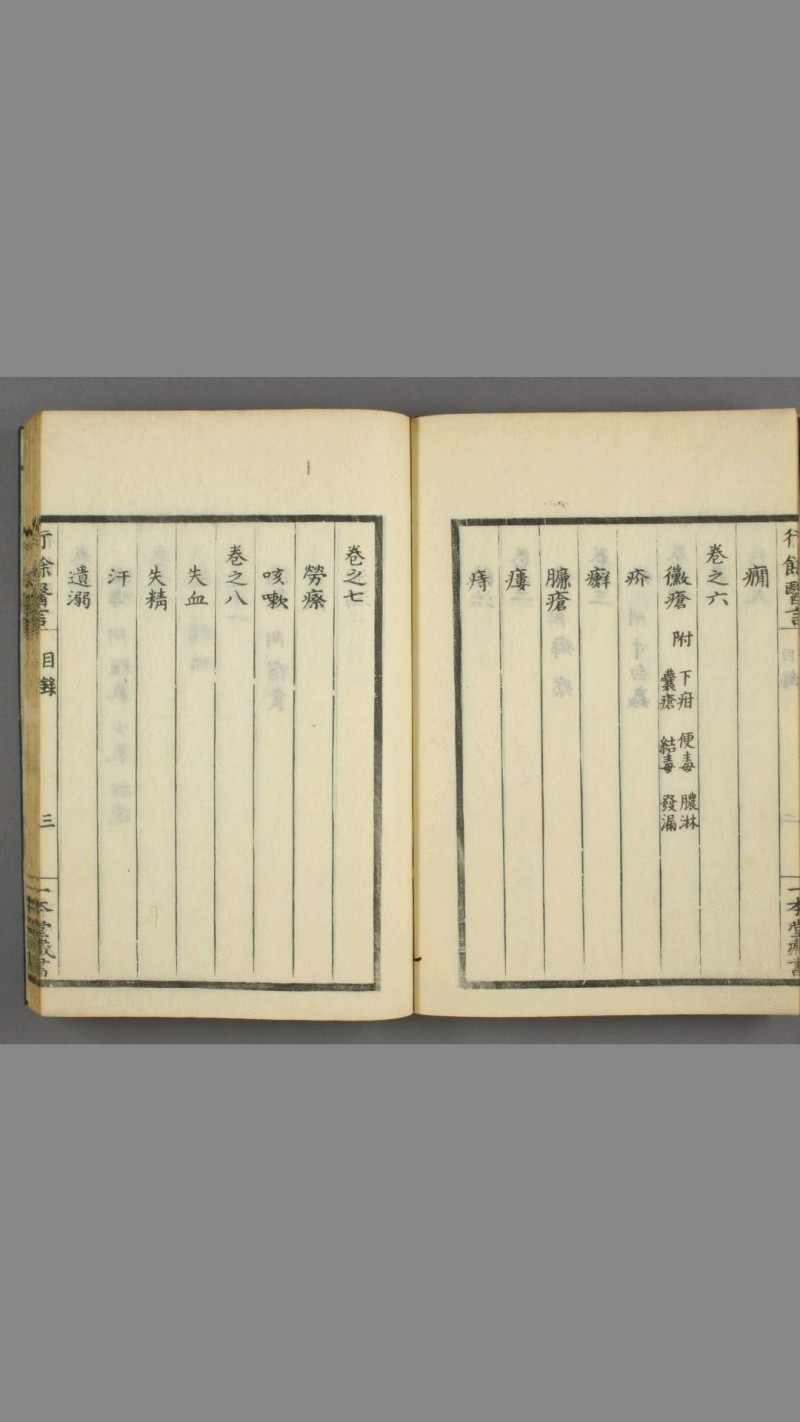 癇
卷之六
黴瘡 附 下疳 便毒 膿淋
囊瘡 結毒 發漏
疥
癬
臁瘡
瘻
痔
行餘醫言 目錄 三 一本堂藏書
卷之七
勞瘵
咳嗽
卷之八
失血
失精
汗
遺溺